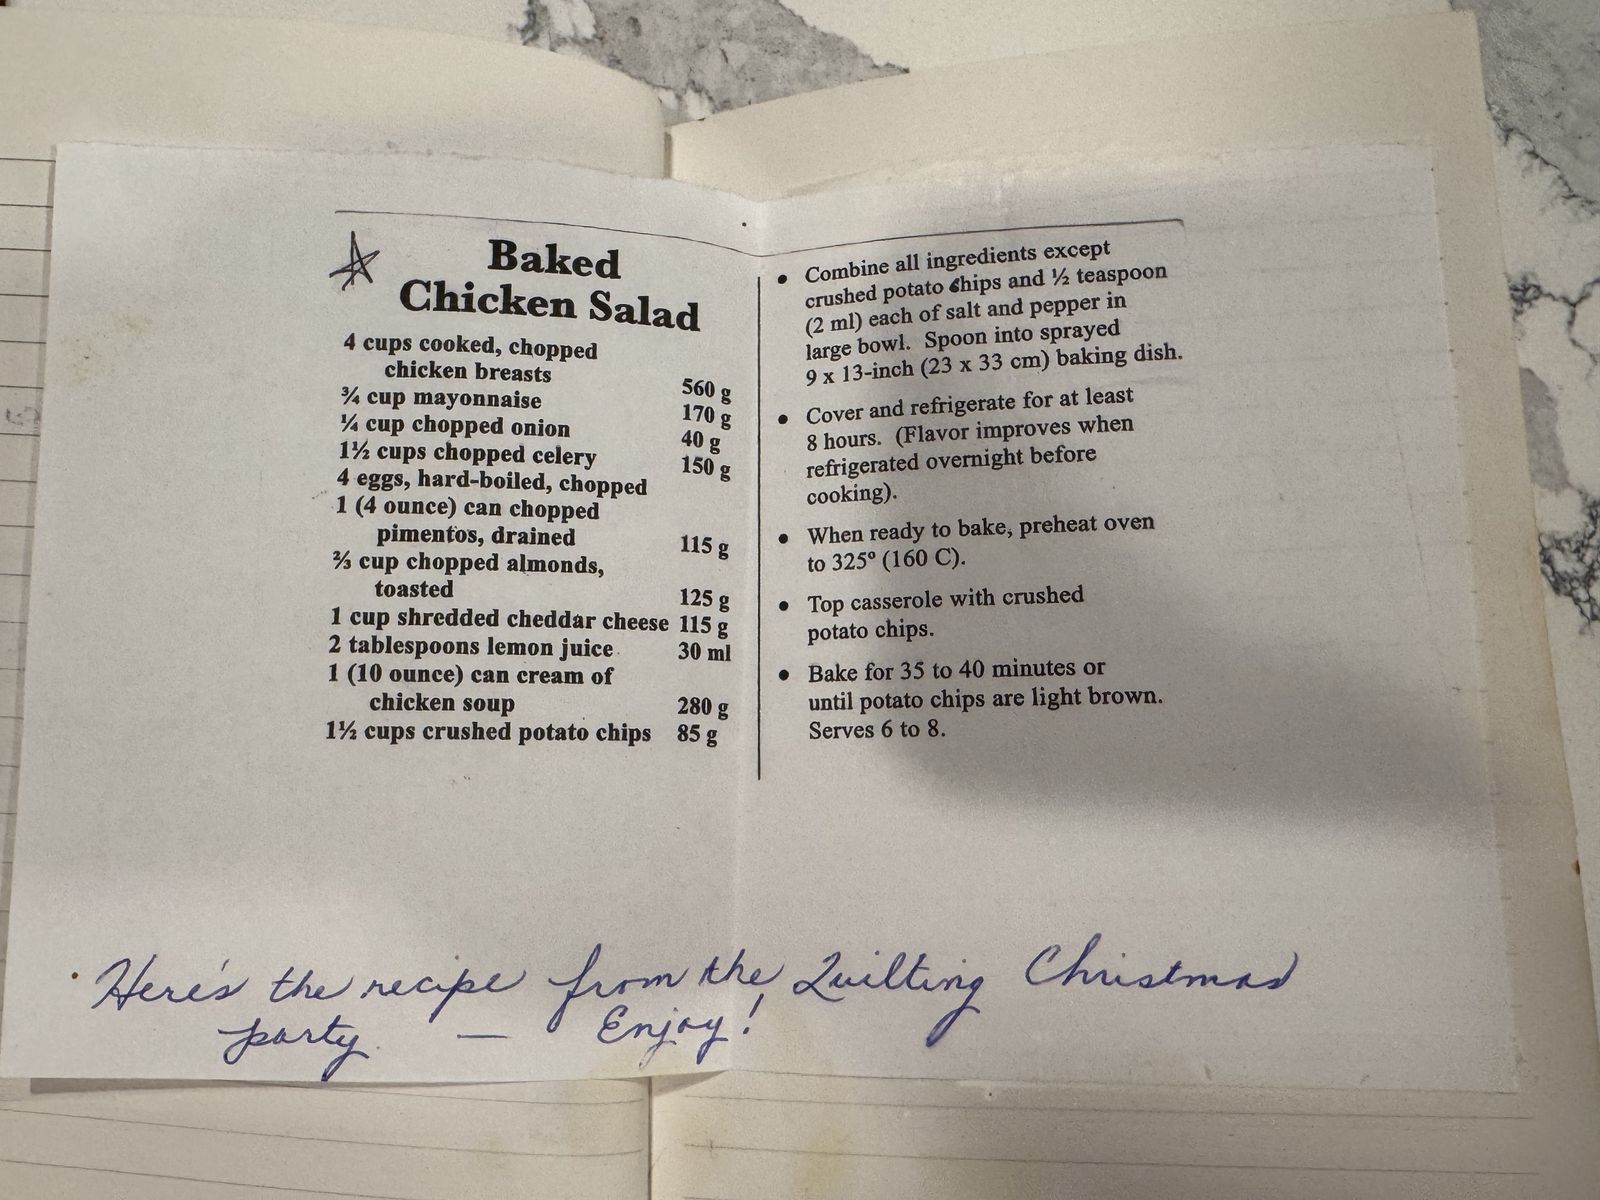 Baked
Chicken Salad
4 cups cooked, chopped
chicken breasts 560 g
¾ cup mayonnaise 170 g
¼ cup chopped onion 40 g
1½ cups chopped celery 150 g
4 eggs, hard-boiled, chopped
1 (4 ounce) can chopped
pimentos, drained 115 g
⅔ cup chopped almonds,
toasted 125 g
1 cup shredded cheddar cheese 115 g
2 tablespoons lemon juice 30 ml
1 (10 ounce) can cream of
chicken soup 280 g
1½ cups crushed potato chips 85 g
• Combine all ingredients except
crushed potato chips and ½ teaspoon
(2 ml) each of salt and pepper in
large bowl. Spoon into sprayed
9 x 13-inch (23 x 33 cm) baking dish.
• Cover and refrigerate for at least
8 hours. (Flavor improves when
refrigerated overnight before
cooking).
• When ready to bake, preheat oven
to 325° (160 C).
• Top casserole with crushed
potato chips.
• Bake for 35 to 40 minutes or
until potato chips are light brown.
Serves 6 to 8.
Here's the recipe from the Quilting Christmas
party — Enjoy!